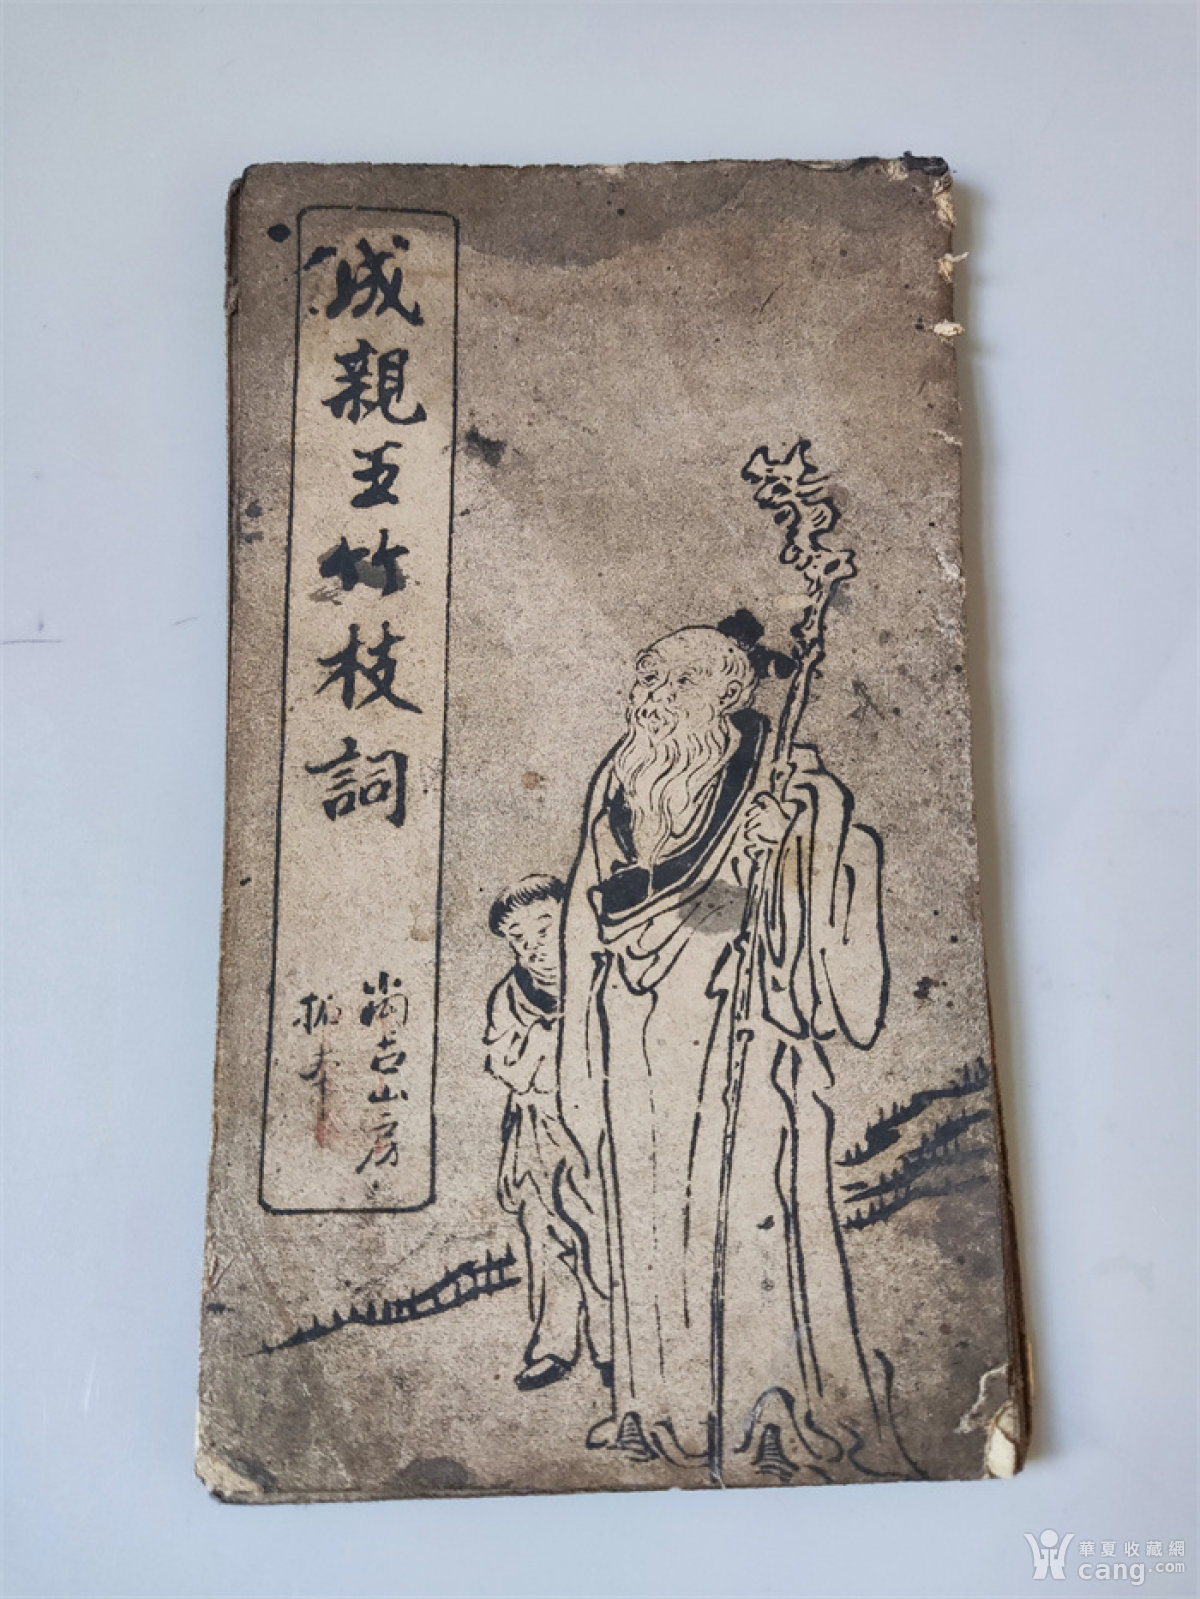 成親王竹枝詞
尚古山房
拓本
華夏收藏網
cang.com